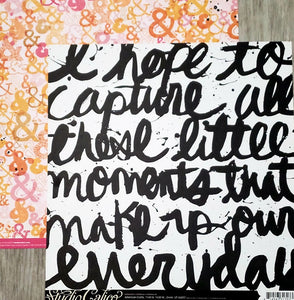 I hope to
capture all
these little
moments that
make up our
everyday
Studio Calico